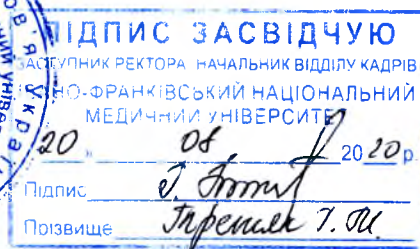 ПІДПИС ЗАСВІДЧУЮ
ЗАСТУПНИК РЕКТОРА НАЧАЛЬНИК ВІДДІЛУ КАДРІВ
НО-ФРАНКІВСЬКИЙ НАЦІОНАЛЬНИЙ
МЕДИЧНИЙ УНІВЕРСИТЕТ
20 " 08 2020 р.
Підпис
Прізвище
Украї